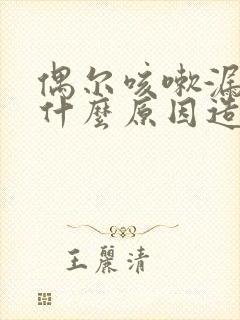 偶尔咳嗽漏
什麼原因造
王麗清